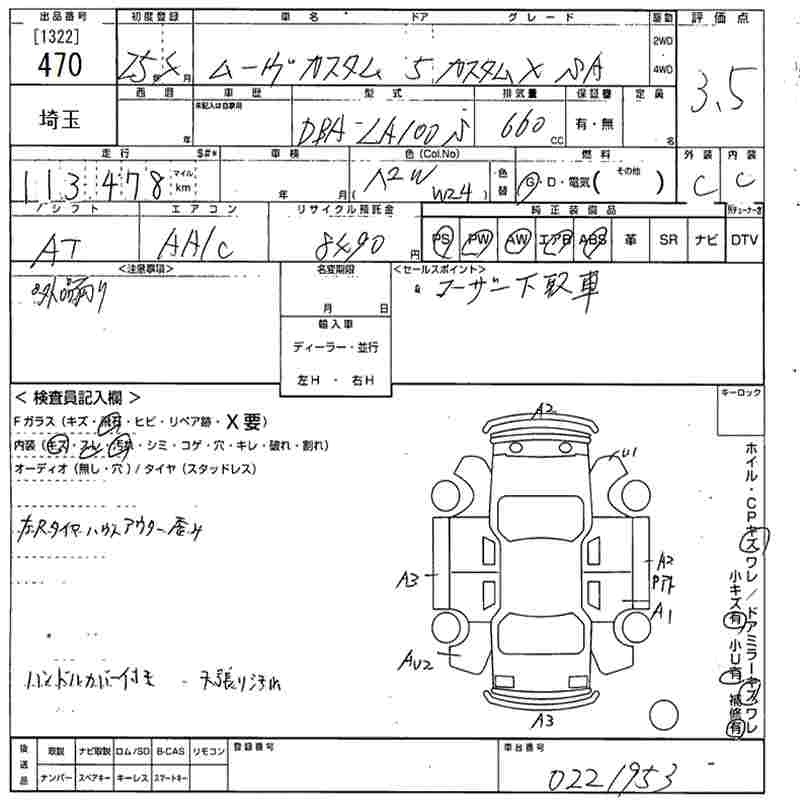 出品番号 初度登録 車名 ドア グレード 駆動 評価点
[1322]
470
25年 月 ムーヴカスタム 5 カスタムX SA 2WD 4WD 3.5
埼玉
西暦 車歴 型式 排気量 保証書 定員
年 未記入は自家用 DBA-LA100S 660 cc 有・無 名
走行 $#* 車検 色(Col.No) 燃料 外装 内装
113478 マイル km 年 月 ( W24 ) 色替 G・D・電気( その他 ) C C
シフト エアコン リサイクル預託金 純正装備品
AT AA/C 8490 円 PS PW AW エアB ABS 革 SR ナビ DTV
<注意事項> 名変期限 <セールスポイント>
月 日 ユーザー下取車
輸入車
ディーラー・並行
左H ・ 右H
< 検査員記入欄 > キーロック
Fガラス (キズ・飛石・ヒビ・リペア跡・X要)
内装 (キズ・スレ・汚れ・シミ・コゲ・穴・キレ・破れ・割れ)
オーディオ (無し・穴) / タイヤ (スタッドレス)
左Rタイヤハウスアウター歪み
ハンドルカバー付モ 天張り汚れ
A2
U1
A3
A2
A1
AU2
A3
ホイル・CPキズワレ / ドアミラーキズワレ
小キズ有 小U有 補修有
後送品 取説 ナビ取説 ロム/SD B-CAS リモコン 登録番号 車台番号
ナンバー スペアキー キーレス スマートキー 0221953